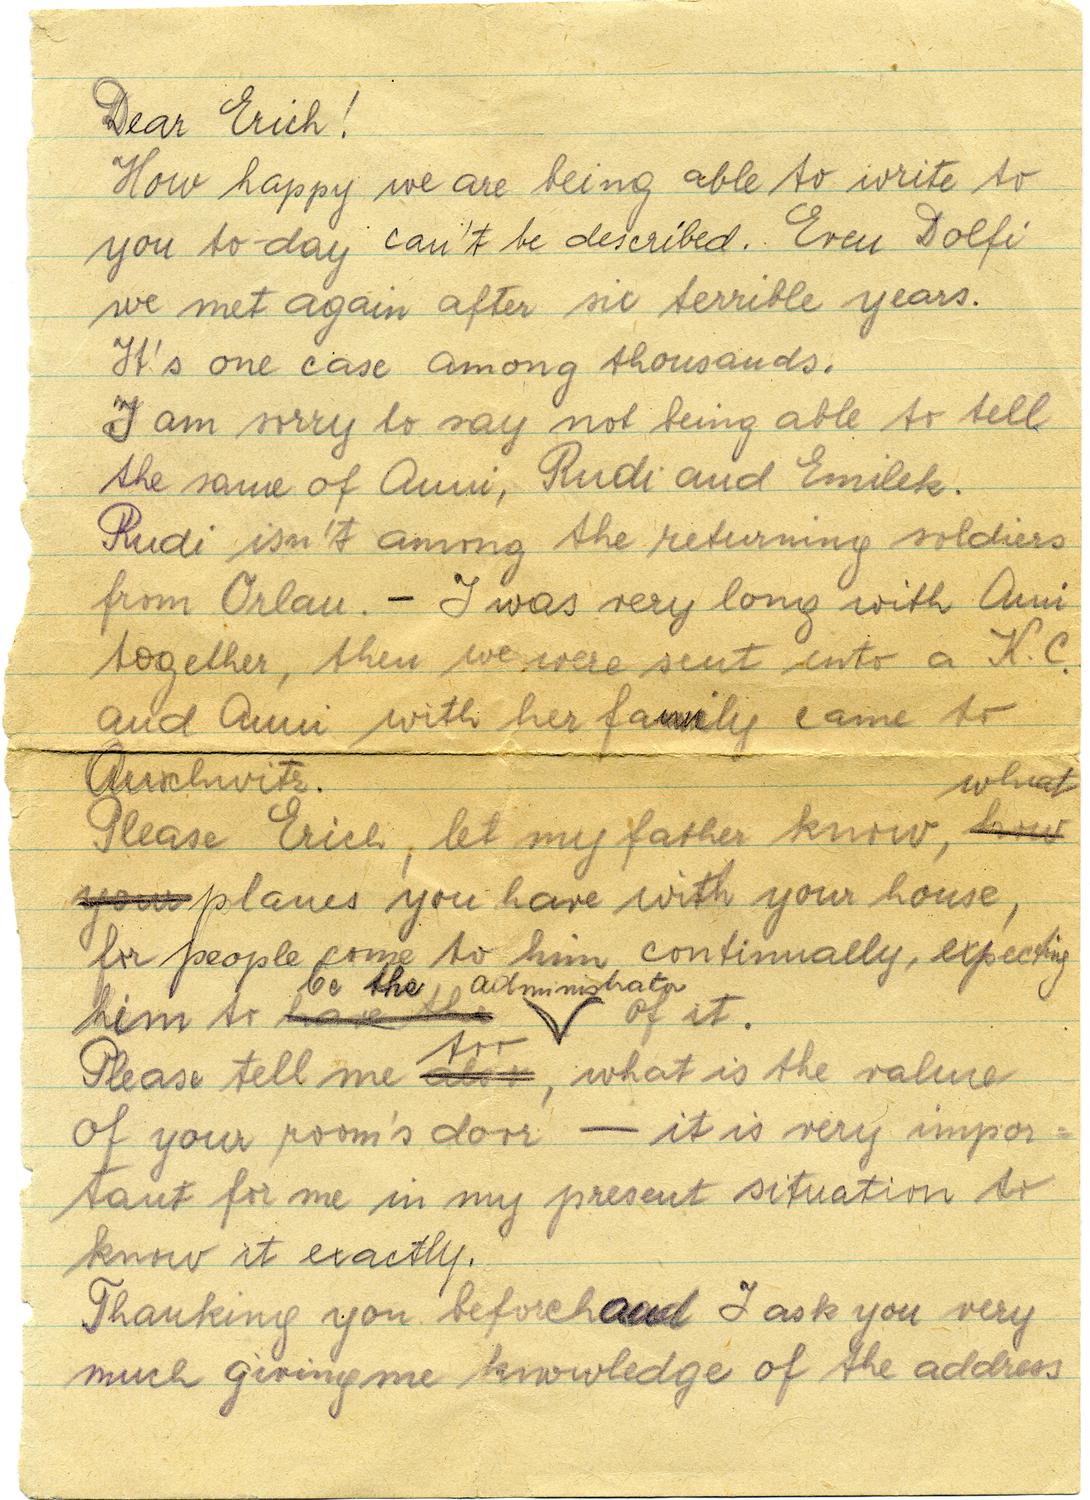 Dear Erich!
How happy we are being able to write to
you to-day can't be described. Even Dolfi
we met again after sic terrible years.
It's one case among thousands.
I am sorry to say not being able to tell
the same of Anni, Rudi and Emilek.
Rudi isn't among the returning soldiers
from Orlau. – I was very long with Anni
together, then we were sent into a K.C.
and Anni with her family came to
Auschwitz.
Please Erich, let my father know, how what
your planes you have with your house,
for people come to him continually, expecting
him to have the be the administrator of it.
Please tell me also too, what is the value
of your room's door — it is very impor=
tant for me in my present situation to
know it exactly.
Thanking you beforehand I ask you very
much giving me knowledge of the address